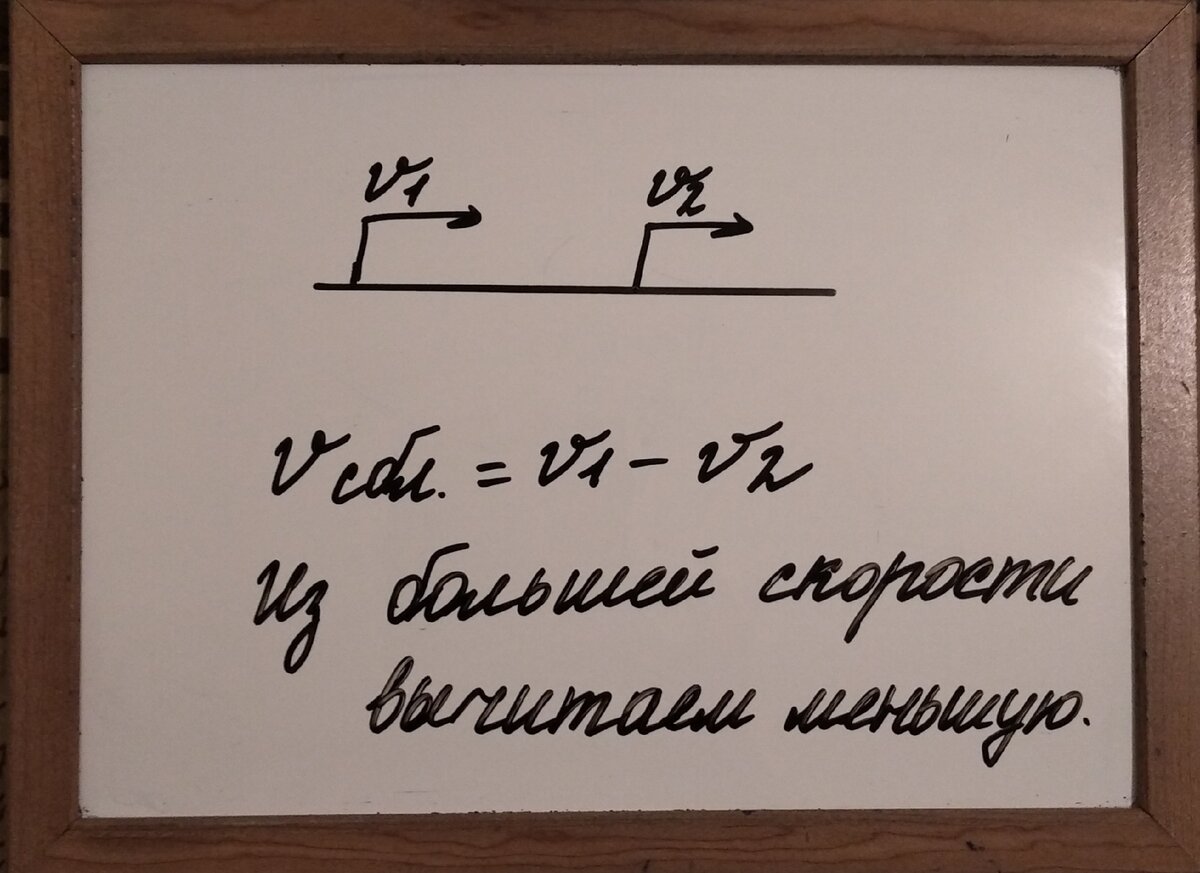 v1 v2
vсбл. = v1 - v2
Из большей скорости
вычитаем меньшую.